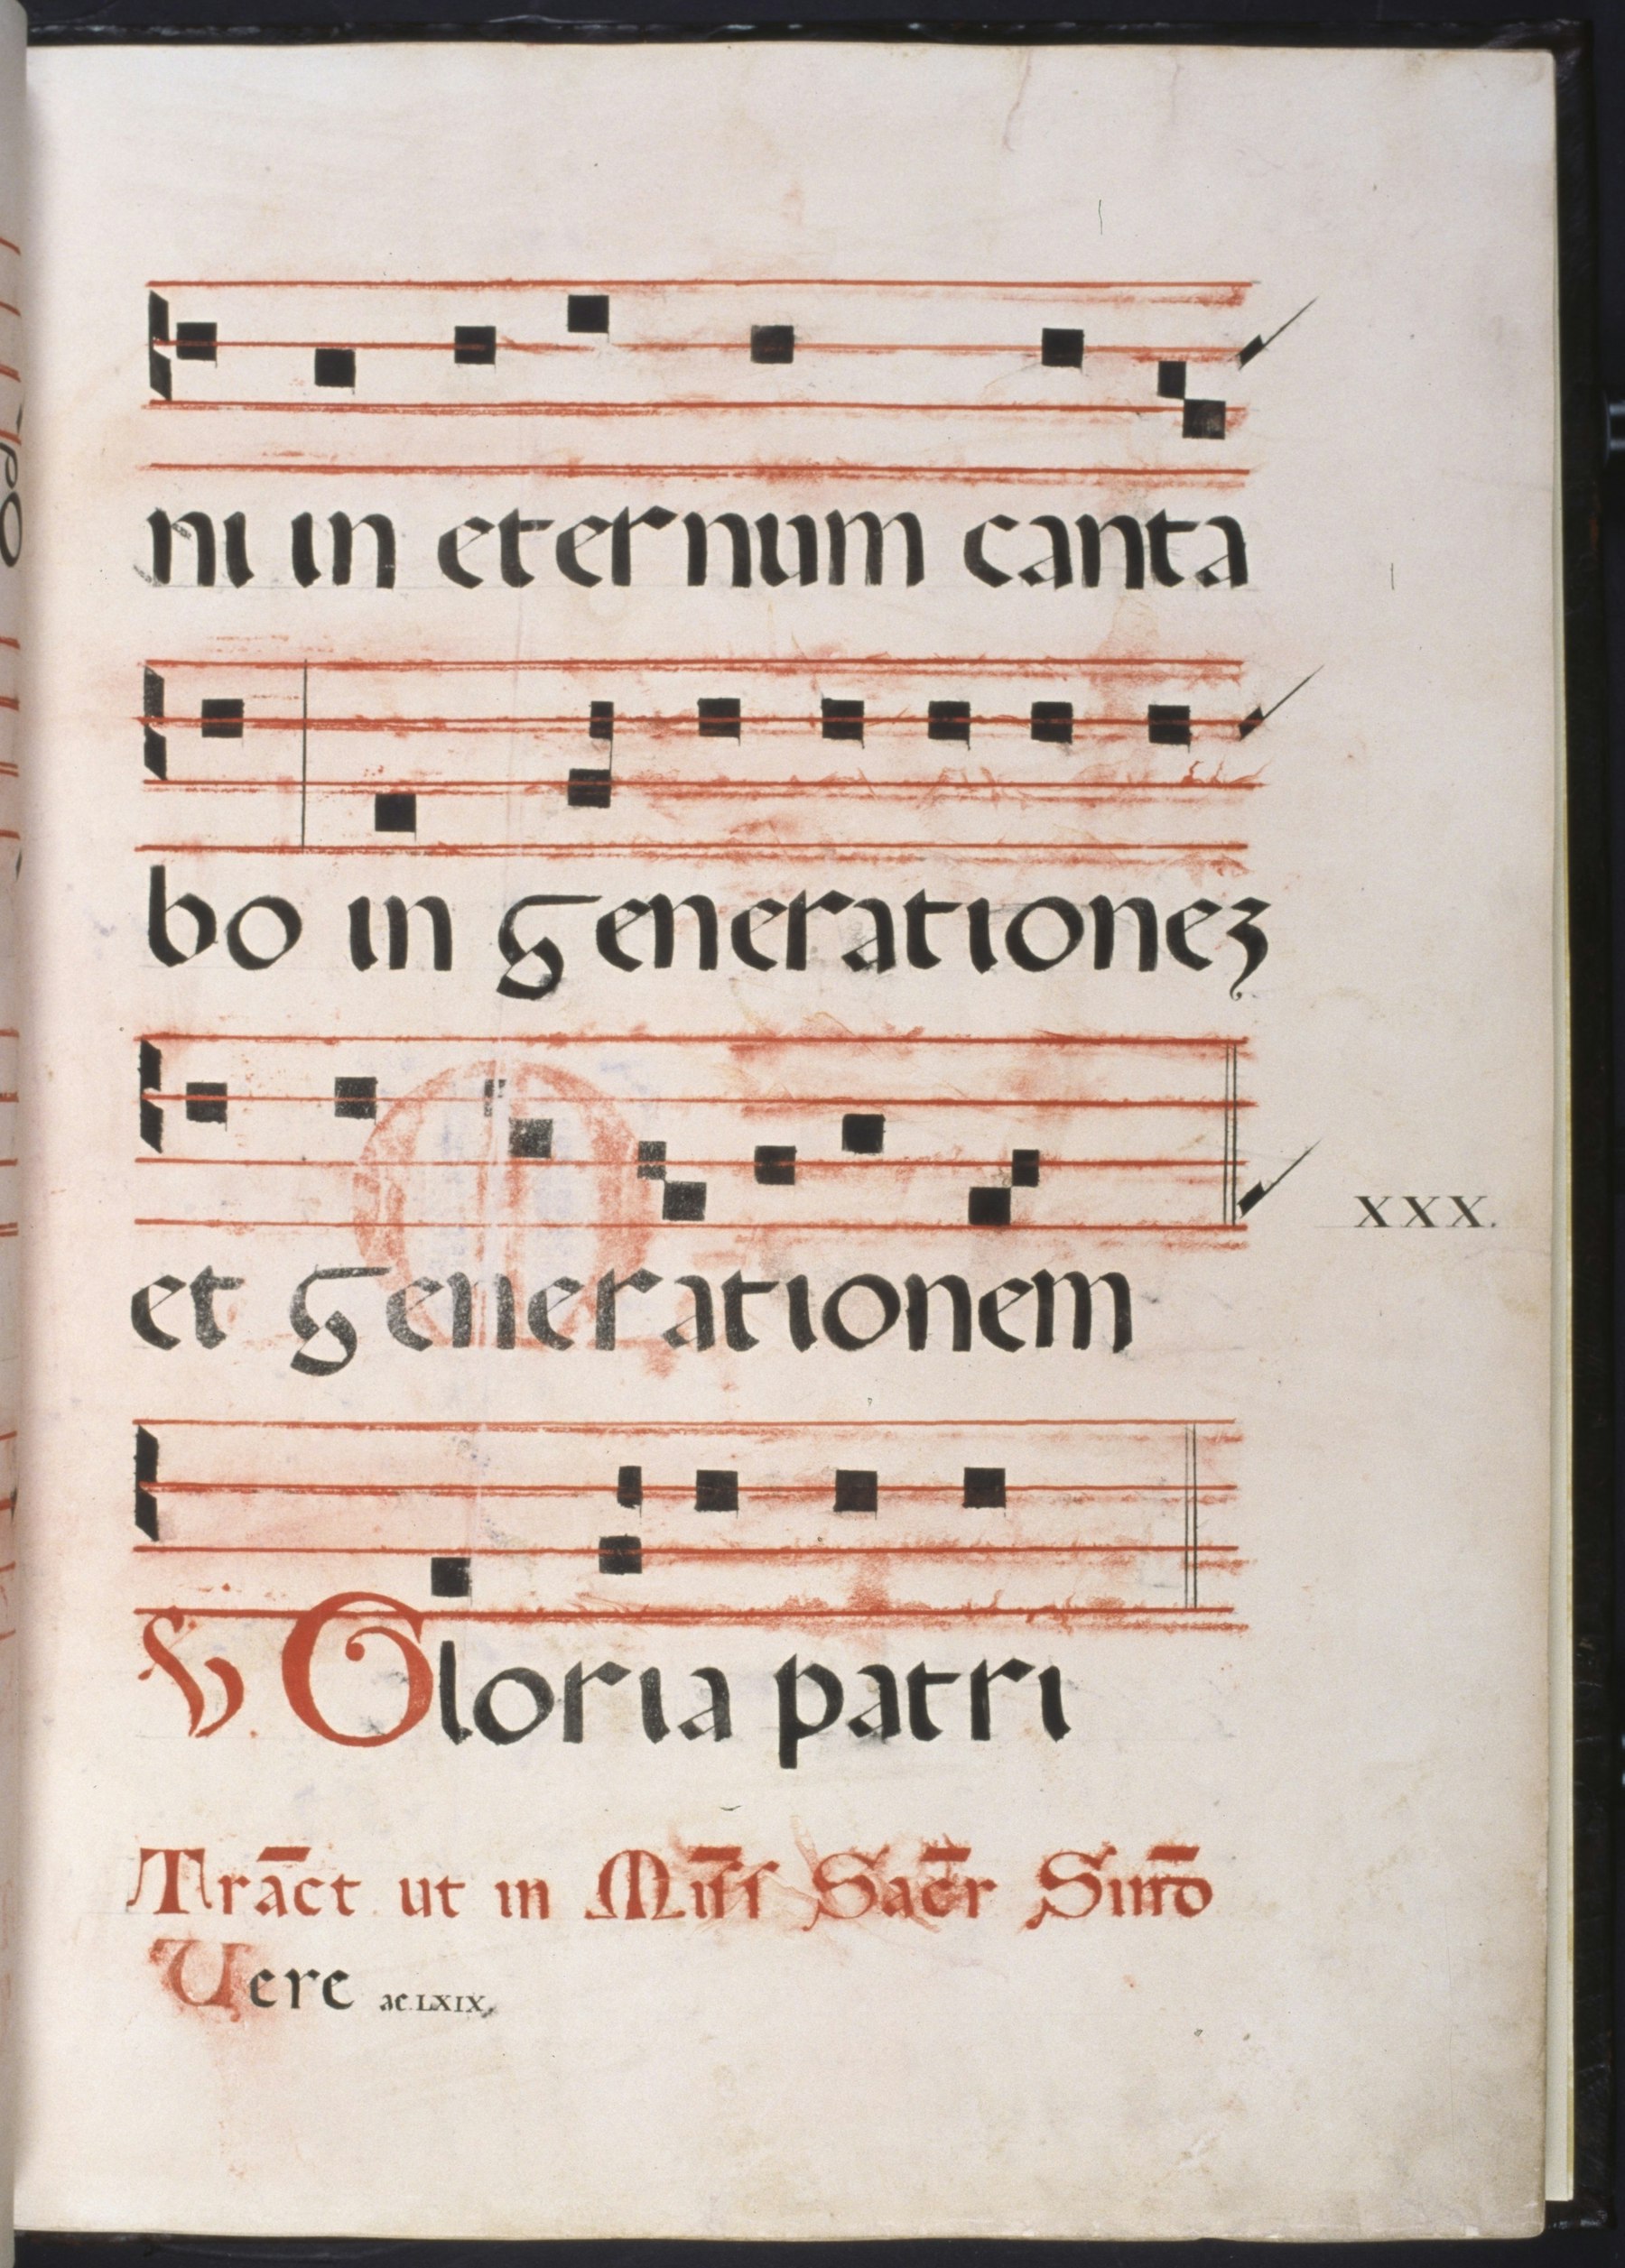 ni in eternum canta
bo in generationeʒ
XXX.
et generationem
℣. Gloria patri
Trāct ut in Mīss Sac̄r Sinō
Vere ac. LXIX.